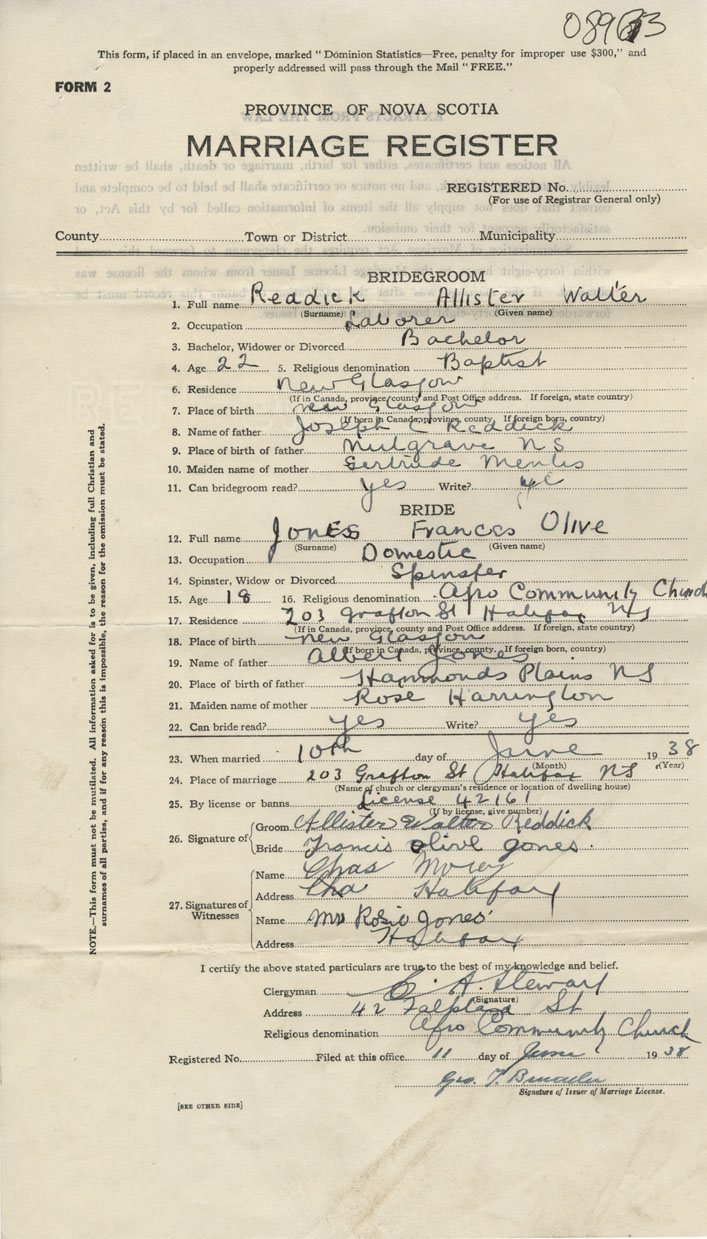 This form, if placed in an envelope, marked " Dominion Statistics—Free, penalty for improper use $300," and
properly addressed will pass through the Mail " FREE."
FORM 2
PROVINCE OF NOVA SCOTIA
MARRIAGE REGISTER
REGISTERED No.
(For use of Registrar General only)
County Town or District Municipality
BRIDEGROOM
1. Full name Reddick Allister Walter
(Surname) (Given name)
2. Occupation Laborer
3. Bachelor, Widower or Divorced Bachelor
4. Age 22 5. Religious denomination Baptist
6. Residence New Glasgow
(If in Canada, province, county and Post Office address. If foreign, state country)
7. Place of birth New Glasgow
(If born in Canada, province, county. If foreign born, country)
8. Name of father Joseph C Reddick
9. Place of birth of father Mulgrave NS
10. Maiden name of mother Gertrude
11. Can bridegroom read? yes Write? yes
BRIDE
12. Full name Jones Frances Olive
(Surname) (Given name)
13. Occupation Domestic
14. Spinster, Widow or Divorced Spinster
15. Age 18 16. Religious denomination Afro Community Church
17. Residence 203 Grafton St Halifax NS
(If in Canada, province, county and Post Office address. If foreign, state country)
18. Place of birth New Glasgow
(If born in Canada, province, county. If foreign born, country)
19. Name of father Albert Jones
20. Place of birth of father Hammonds Plains NS
21. Maiden name of mother Rose Harrington
22. Can bride read? yes Write? yes
23. When married 10th day of June 1938
(Month) (Year)
24. Place of marriage 203 Grafton St Halifax NS
(Name of church or clergyman's residence or location of dwelling house)
25. By license or banns License 42161
(If by license, give number)
26. Signature of Groom Allister Walter Reddick
Bride Francis olive Jones.
27. Signatures of Witnesses
Name Chas
Address Halifax
Name Mrs Rosie Jones
Address Halifax
I certify the above stated particulars are true to the best of my knowledge and belief.
Clergyman C. A. Stewart
(Signature)
Address 42 St
Religious denomination Afro Community Church
Registered No. Filed at this office 11 day of June 1938
Geo. T.
Signature of Issuer of Marriage License.
[SEE OTHER SIDE]
NOTE.—This form must not be mutilated. All information asked for is to be given, including full Christian and
surnames of all parties, and if for any reason this is impossible, the reason for the omission must be stated.